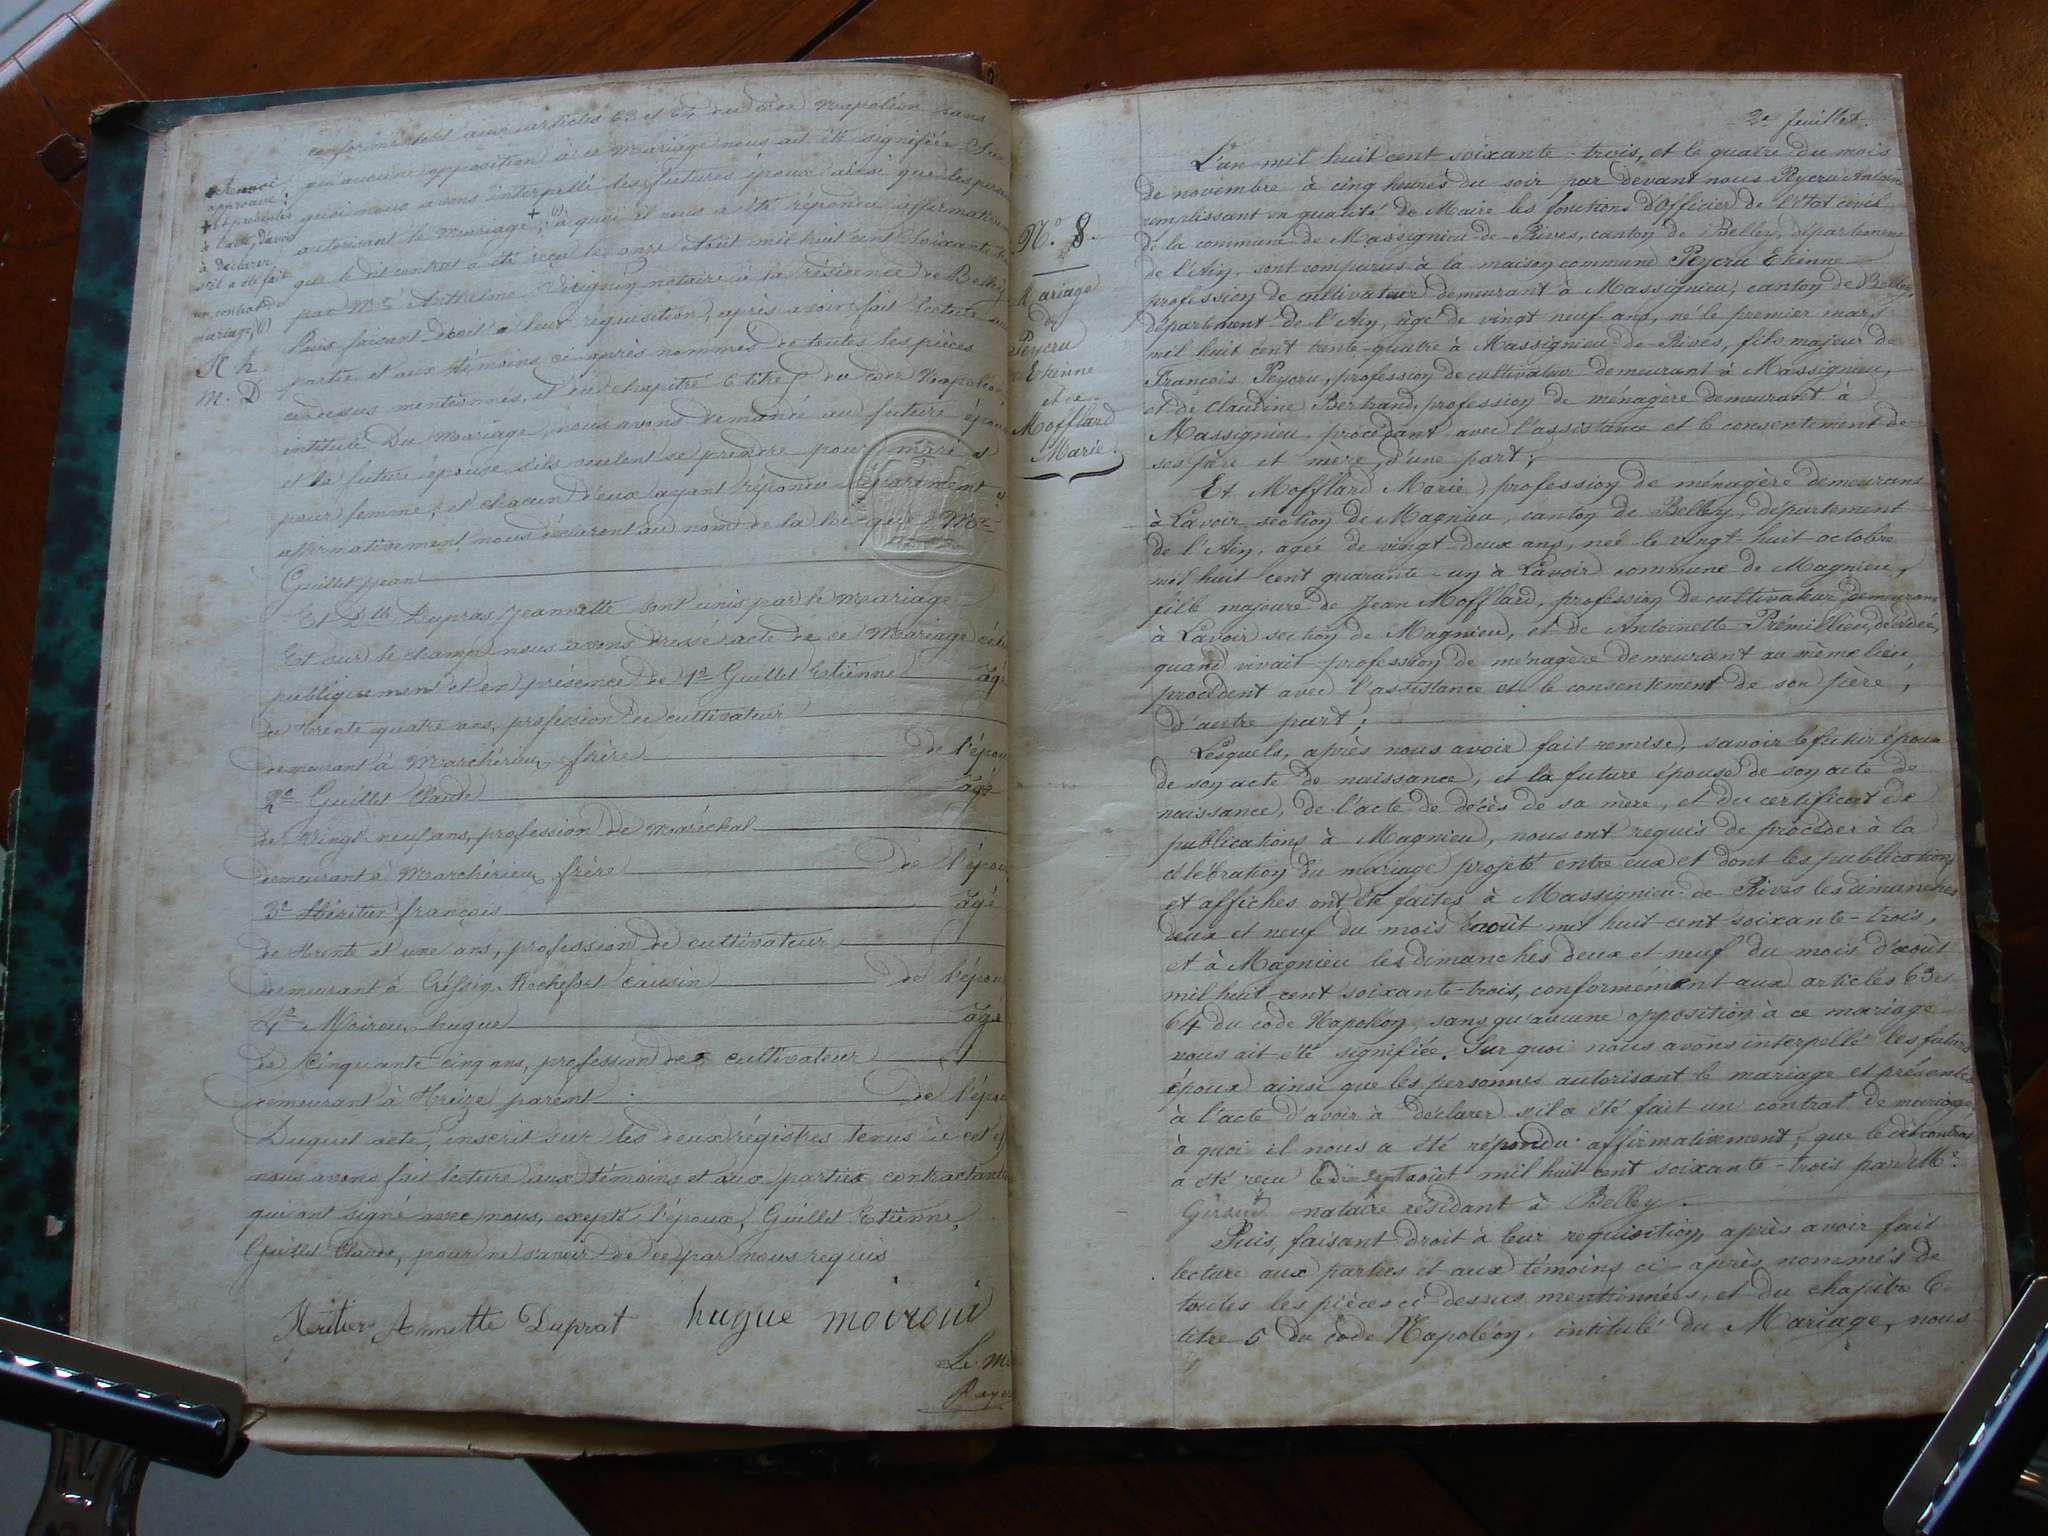 conformément aux articles 63 et 64 du code Napoléon sans
qu'aucune opposition à ce mariage nous ait été signifiée. Sur
quoi nous avons interpellé les futures époux ainsi que les
autorisant le mariage, + (1) à quoi il nous a été répondu
que le dit contrat a été reçu le onze août mil huit cent soixante
par Me Anthelme notaire à la résidence de Belley
Puis faisant droit à leur requisition, après avoir fait lecture aux
partie et aux témoins ci-après nommés de toutes les pièces
ci-dessus mentionnés, et du chapitre 6 titre 5 du code Napoléon
intitulé Du Mariage, nous avons demandé au future
et la future épouse s'ils veulent se prendre pour mari et
pour femme, et chacun d'eux ayant répondu séparément et
affirmativement, nous déclarons au nom de la loi que Mr
Guillet Jean
Et Dlle Dupras Jeannette sont unis par le mariage
Et sur le champ nous avons dressé acte de ce mariage
publiquement et en présence de 1o Guillet Etiènne agé
de trente quatre ans, profession de cultivateur
demeurant à Marchérieu frère de l'épou
2o Guillet Claude âgé
de vingt neuf ans, profession de maréchal
demeurant à Marchérieu frère de l'épou
3o françois âgé
de trente et une ans, profession de cultivateur
demeurant à Créssin Rochefort cousin de l'épou
4o hugue âgé
de cinquante cinq ans, profession de cultivateur
demeurant à parent de l'épou
Duquel acte, inscrit sur les deux régistres tenus à cet
nous avons fait lecture aux témoins et aux parties contractant
qui ont signé avec nous, exepté l'époux, Guillet Etiènne,
Guillet Claude, pour ne savoir de ce par nous requis
Annette Duprat hugue moiroud
Le m
Renvoi
approuvé
+ et présentes
à l'acte, d'avoir
à déclarer
s'il a été fait
un contrat de
mariage, (1)
M. D
2e feuillet.
No 8.
Mariage
de
Peycru
Etienne
et de
Mofflard
Marie.
L'an mil huit cent soixante-trois, et le quatre du mois
de novembre à cinq heures du soir par devant nous Peycru Antoine
remplissant en qualité de Maire les fonctions d'Officier de l'état civil
de la commune de Massignieu-de-Rives, canton de Belley, département
de l'Ain, sont comparus à la maison commune Peycru Etienne
profession de cultivateur demeurant à Massignieu, canton de Belley,
département de l'Ain, âgé de vingt neuf ans, né le premier mars
mil huit cent trente-quatre à Massignieu-de-Rives, fils majeur de
François Peycru, profession de cultivateur demeurant à Massignieu,
et de Claudine Bertrand, profession de ménagère demeurant à
Massignieu, procédant avec l'assistance et le consentement de
ses père et mère, d'une part;
Et Mofflard Marie, profession de ménagère demeurant
à Lavoir section de Magnieu, canton de Belley, département
de l'Ain, agée de vingt-deux ans, née le vingt-huit octobre
mil huit cent quarante-un à Lavoir commune de Magnieu,
fille majeure de Jean Mofflard, profession de cultivateur demeurant
à Lavoir section de Magnieu, et de Antoinette Prémillieu, décédée,
quand vivait profession de ménagère demeurant au même lieu,
procédent avec l'assistance et le consentement de son père,
d'autre part;
Lesquels, après nous avoir fait remise, savoir le futur époux
de son acte de naissance, et la future épouse de son acte de
naissance, de l'acte de décès de sa mère, et du certificat de
publications à Magnieu, nous ont requis de procéder à la
célébration du mariage projeté entre eux et dont les publications
et affiches ont été faites à Massignieu-de-Rives les dimanches
deux et neuf du mois d'août mil huit cent soixante-trois,
et à Magnieu les dimanches deux et neuf du mois d'août
mil huit cent soixante-trois, conformément aux articles 63 et
64 du code Napoléon, sans qu'aucune opposition à ce mariage
nous ait été signifiée. Sur quoi nous avons interpellé les futurs
époux ainsi que les personnes autorisant le mariage et présentes
à l'acte d'avoir à déclarer s'il a été fait un contrat de mariage,
à quoi il nous a été répondu affirmativement, que le dit contrat
a été reçu le dix sept août mil huit cent soixante-trois par Me
Giraud notaire résidant à Belley.
Puis, faisant droit à leur requisition, après avoir fait
lecture aux parties et aux témoins ci-après nommés de
toutes les pièces ci-dessus mentionnées, et du chapitre 6
titre 5 du code Napoléon, intitulé du Mariage, nous